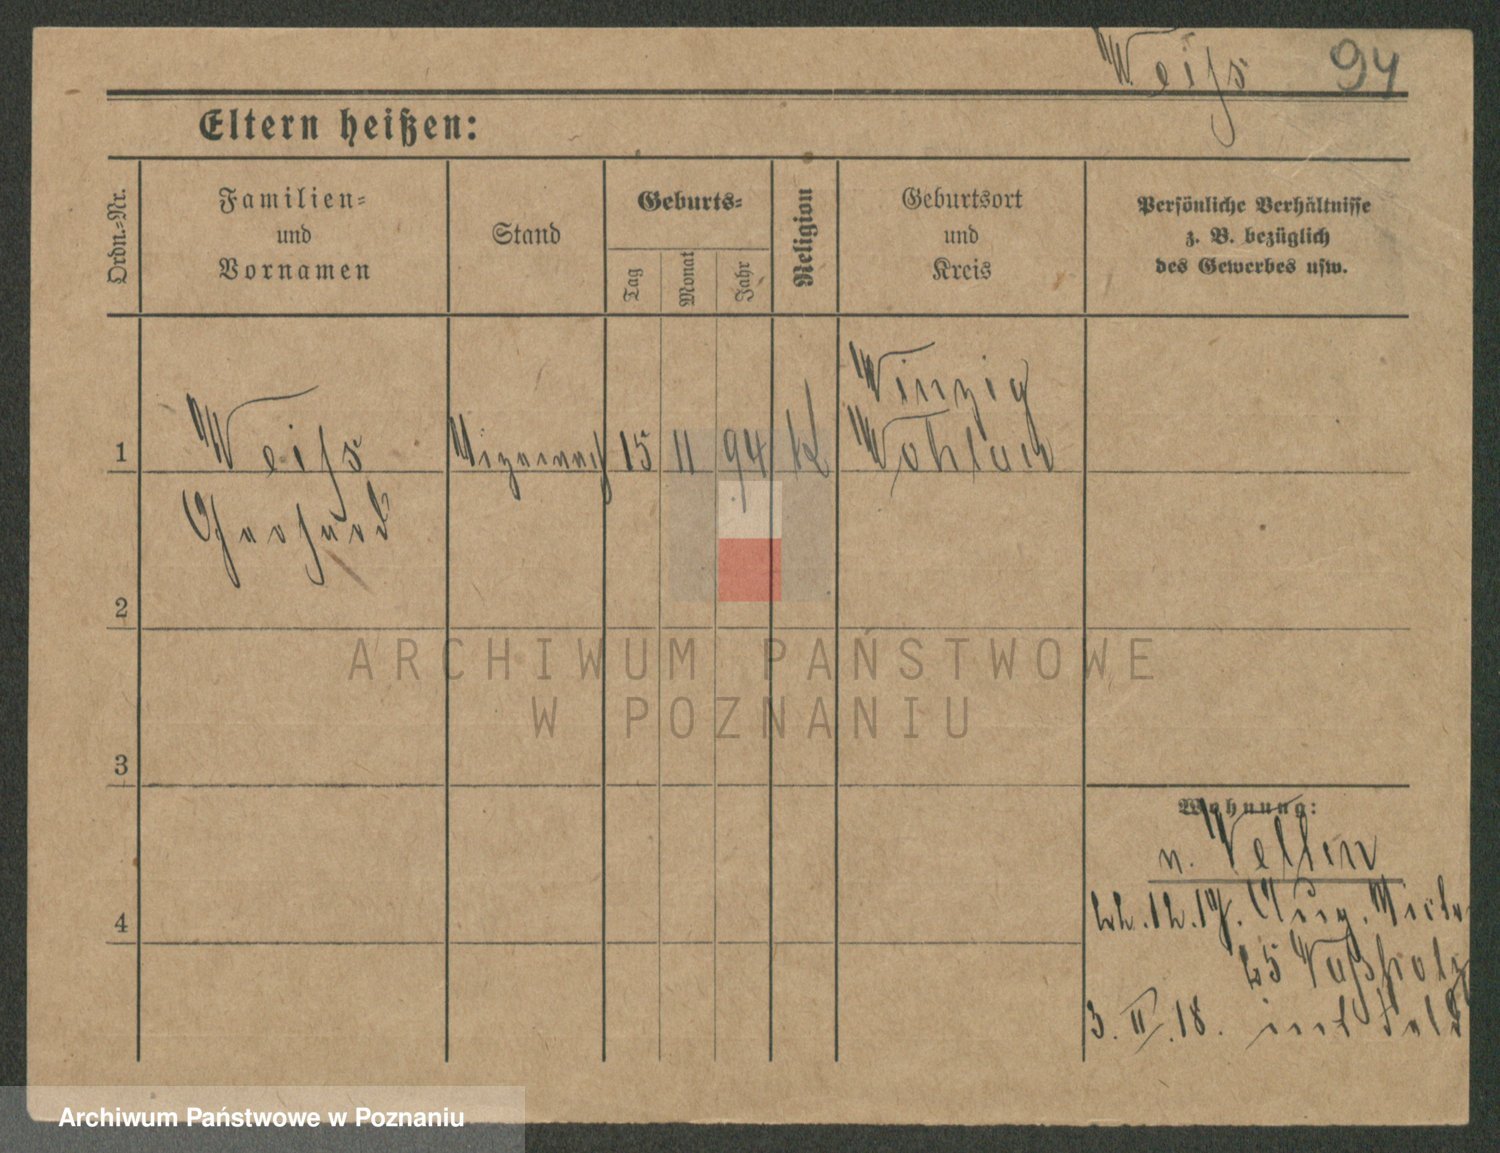 Weiß 94
Eltern heißen:
Ordn.-Nr.
Familien-
und
Vornamen
Stand
Geburts-
Tag
Monat
Jahr
Religion
Geburtsort
und
Kreis
Persönliche Verhältnisse
z. B. bezüglich
des Gewerbes usw.
1
Weiß
15
11
94
k
Winzig
Wohlau
Gerhard
2
3
4
Wohnung:
n.
22.12.17. Aug.
25
3.II.18. ins Feld
ARCHIWUM PAŃSTWOWE
W POZNANIU
Archiwum Państwowe w Poznaniu